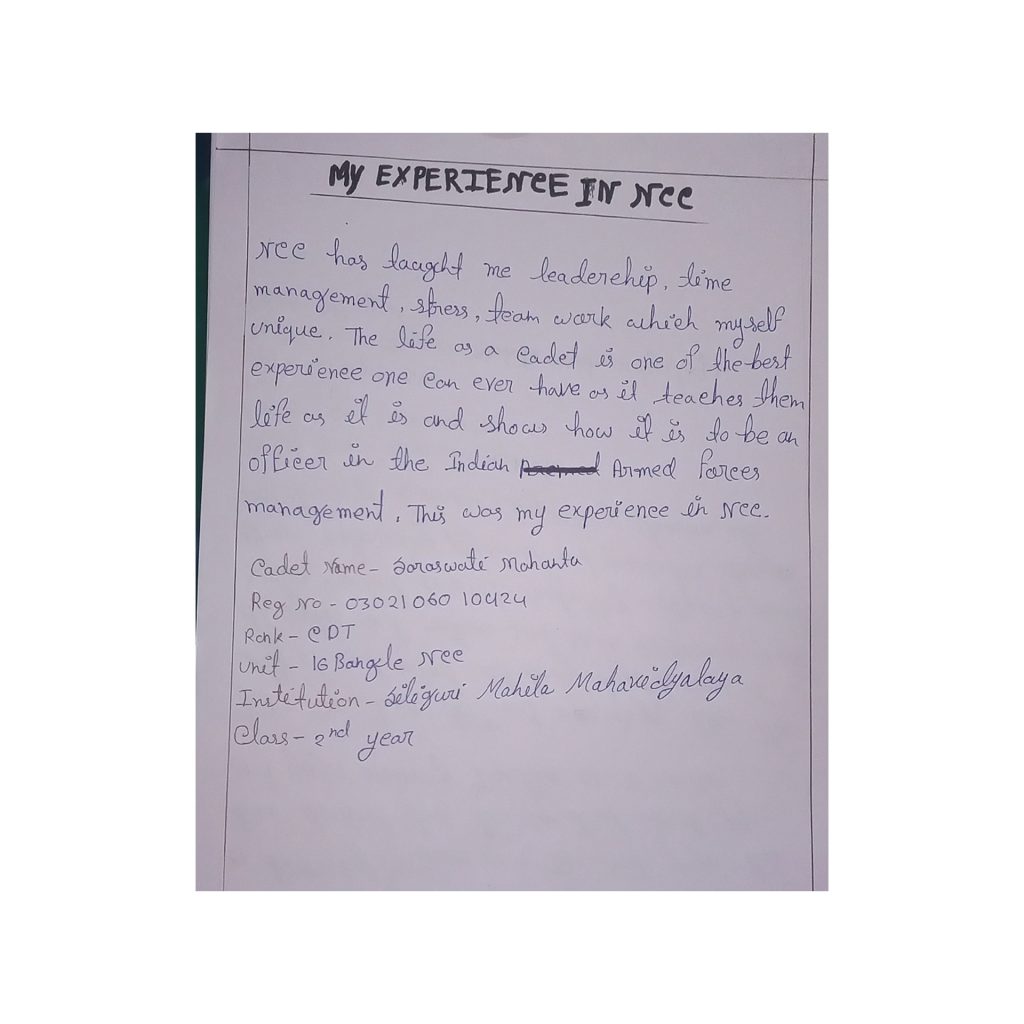 MY EXPERIENCE IN NCC
NCC has taught me leadership, time
management, stress, team work which myself
unique. The life as a cadet is one of the best
experience one can ever have as it teaches them
life as it is and shows how it is to be an
officer in the Indian Armed forces
management. This was my experience in NCC.
Cadet Name - Saraswati Mahanta
Reg No - 03021060 10424
Rank - CDT
Unit - 16 Bangle NCC
Institution - Siliguri Mahila Mahavidyalaya
Class - 2nd year